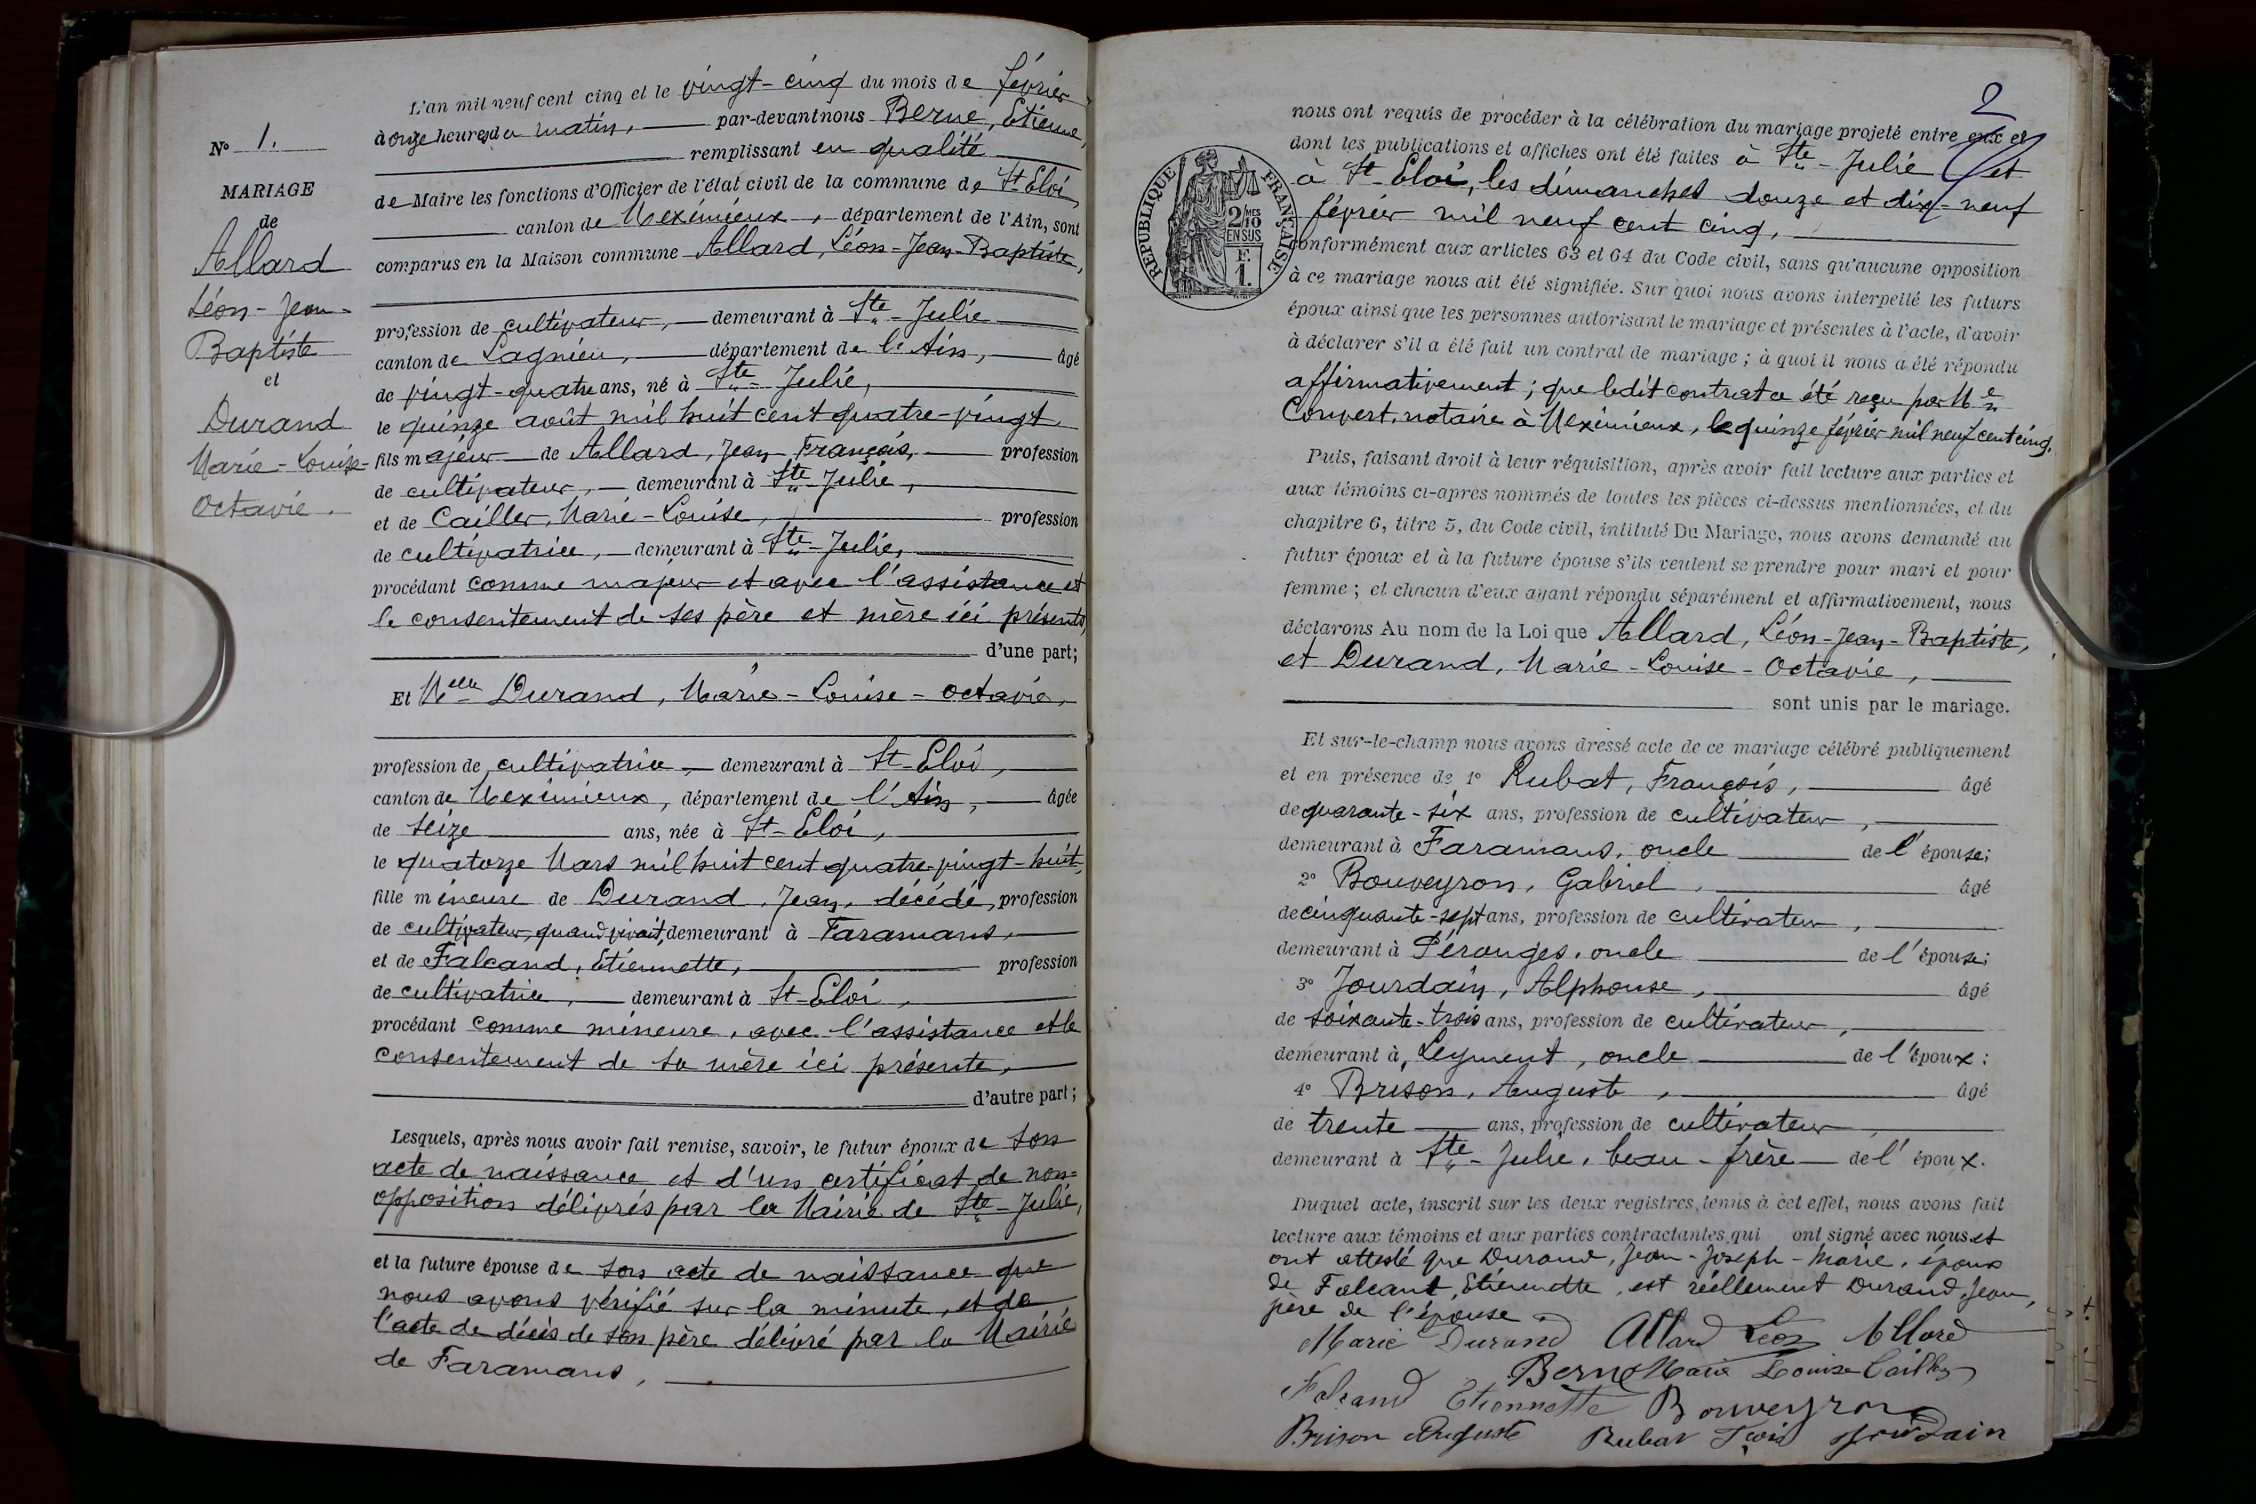 L'an mil neuf cent cinq et le vingt-cinq du mois de février
à onze heures du matin, par-devant nous Berne, Etienne,
remplissant en qualité
de Maire les fonctions d'Officier de l'état civil de la commune de St-Eloi,
canton de Meximieux, département de l'Ain, sont
comparus en la Maison commune Allard, Léon-Jean-Baptiste,
profession de cultivateur, demeurant à Ste-Julie
canton de Lagnieu, département de l'Ain, âgé
de vingt-quatre ans, né à Ste-Julie,
le quinze août mil huit cent quatre-vingt,
fils majeur de Allard, Jean-François, profession
de cultivateur, demeurant à Ste-Julie,
et de Cailler, Marie-Louise, profession
de cultivatrice, demeurant à Ste-Julie,
procédant comme majeur et avec l'assistance et
le consentement de ses père et mère ici présents,
d'une part;
Et Melle Durand, Marie-Louise-Octavie,
profession de cultivatrice, demeurant à St-Eloi,
canton de Meximieux, département de l'Ain, âgée
de seize ans, née à St-Eloi,
le quatorze Mars mil huit cent quatre-vingt-huit,
fille mineure de Durand, Jean, décédé, profession
de cultivateur, quand vivait, demeurant à Faramans,
et de Falcand, Etiennette, profession
de cultivatrice, demeurant à St-Eloi,
procédant comme mineure, avec l'assistance et le
consentement de sa mère ici présente,
d'autre part;
Lesquels, après nous avoir fait remise, savoir, le futur époux de son
acte de naissance et d'un certificat de non=
opposition délivrés par la Mairie de Ste-Julie,
et la future épouse de son acte de naissance que
nous avons vérifié sur la minute, et de
l'acte de décès de son père délivré par la Mairie
de Faramans,
No 1.
MARIAGE
de
Allard
Léon-Jean-
Baptiste
et
Durand
Marie-Louise-
Octavie.
2
nous ont requis de procéder à la célébration du mariage projeté entre eux et
dont les publications et affiches ont été faites à Ste-Julie et
à St-Eloi, les dimanches douze et dix-neuf
février mil neuf cent cinq,
conformément aux articles 63 et 64 du Code civil, sans qu'aucune opposition
à ce mariage nous ait été signifiée. Sur quoi nous avons interpellé les futurs
époux ainsi que les personnes autorisant le mariage et présentes à l'acte, d'avoir
à déclarer s'il a été fait un contrat de mariage; à quoi il nous a été répondu
affirmativement; que ledit contrat a été reçu par Me
Convert, notaire à Meximieux, le quinze février mil neuf cent cinq.
Puis, faisant droit à leur réquisition, après avoir fait lecture aux parties et
aux témoins ci-après nommés de toutes les pièces ci-dessus mentionnées, et du
chapitre 6, titre 5, du Code civil, intitulé Du Mariage, nous avons demandé au
futur époux et à la future épouse s'ils veulent se prendre pour mari et pour
femme; et chacun d'eux ayant répondu séparément et affirmativement, nous
déclarons Au nom de la Loi que Allard, Léon-Jean-Baptiste,
et Durand, Marie-Louise-Octavie,
sont unis par le mariage.
Et sur-le-champ nous avons dressé acte de ce mariage célébré publiquement
et en présence de 1° Rubat, François, âgé
de quarante-six ans, profession de cultivateur,
demeurant à Faramans, oncle de l'épouse;
2° Bouveyron, Gabriel, âgé
de cinquante-sept ans, profession de cultivateur,
demeurant à Pérouges, oncle de l'épouse;
3° Jourdain, Alphonse, âgé
de soixante-trois ans, profession de cultivateur,
demeurant à Leyment, oncle de l'époux;
4° Brison, Auguste, âgé
de trente ans, profession de cultivateur,
demeurant à Ste-Julie, beau-frère de l'époux.
Duquel acte, inscrit sur les deux registres tenus à cet effet, nous avons fait
lecture aux témoins et aux parties contractantes, qui ont signé avec nous et
ont attesté que Durand, Jean-Joseph-Marie, époux
de Falcant, Etiennette, est réellement Durand, Jean,
père de l'épouse
Marie Durand Allard Léon Allard
Berne Marie Louise Cailler
Falcand Etiennette Bouveyron
Brison Auguste Rubat Fçois Jourdain
RÉPUBLIQUE FRANÇAISE
2/10 MES
EN SUS
F.
1.